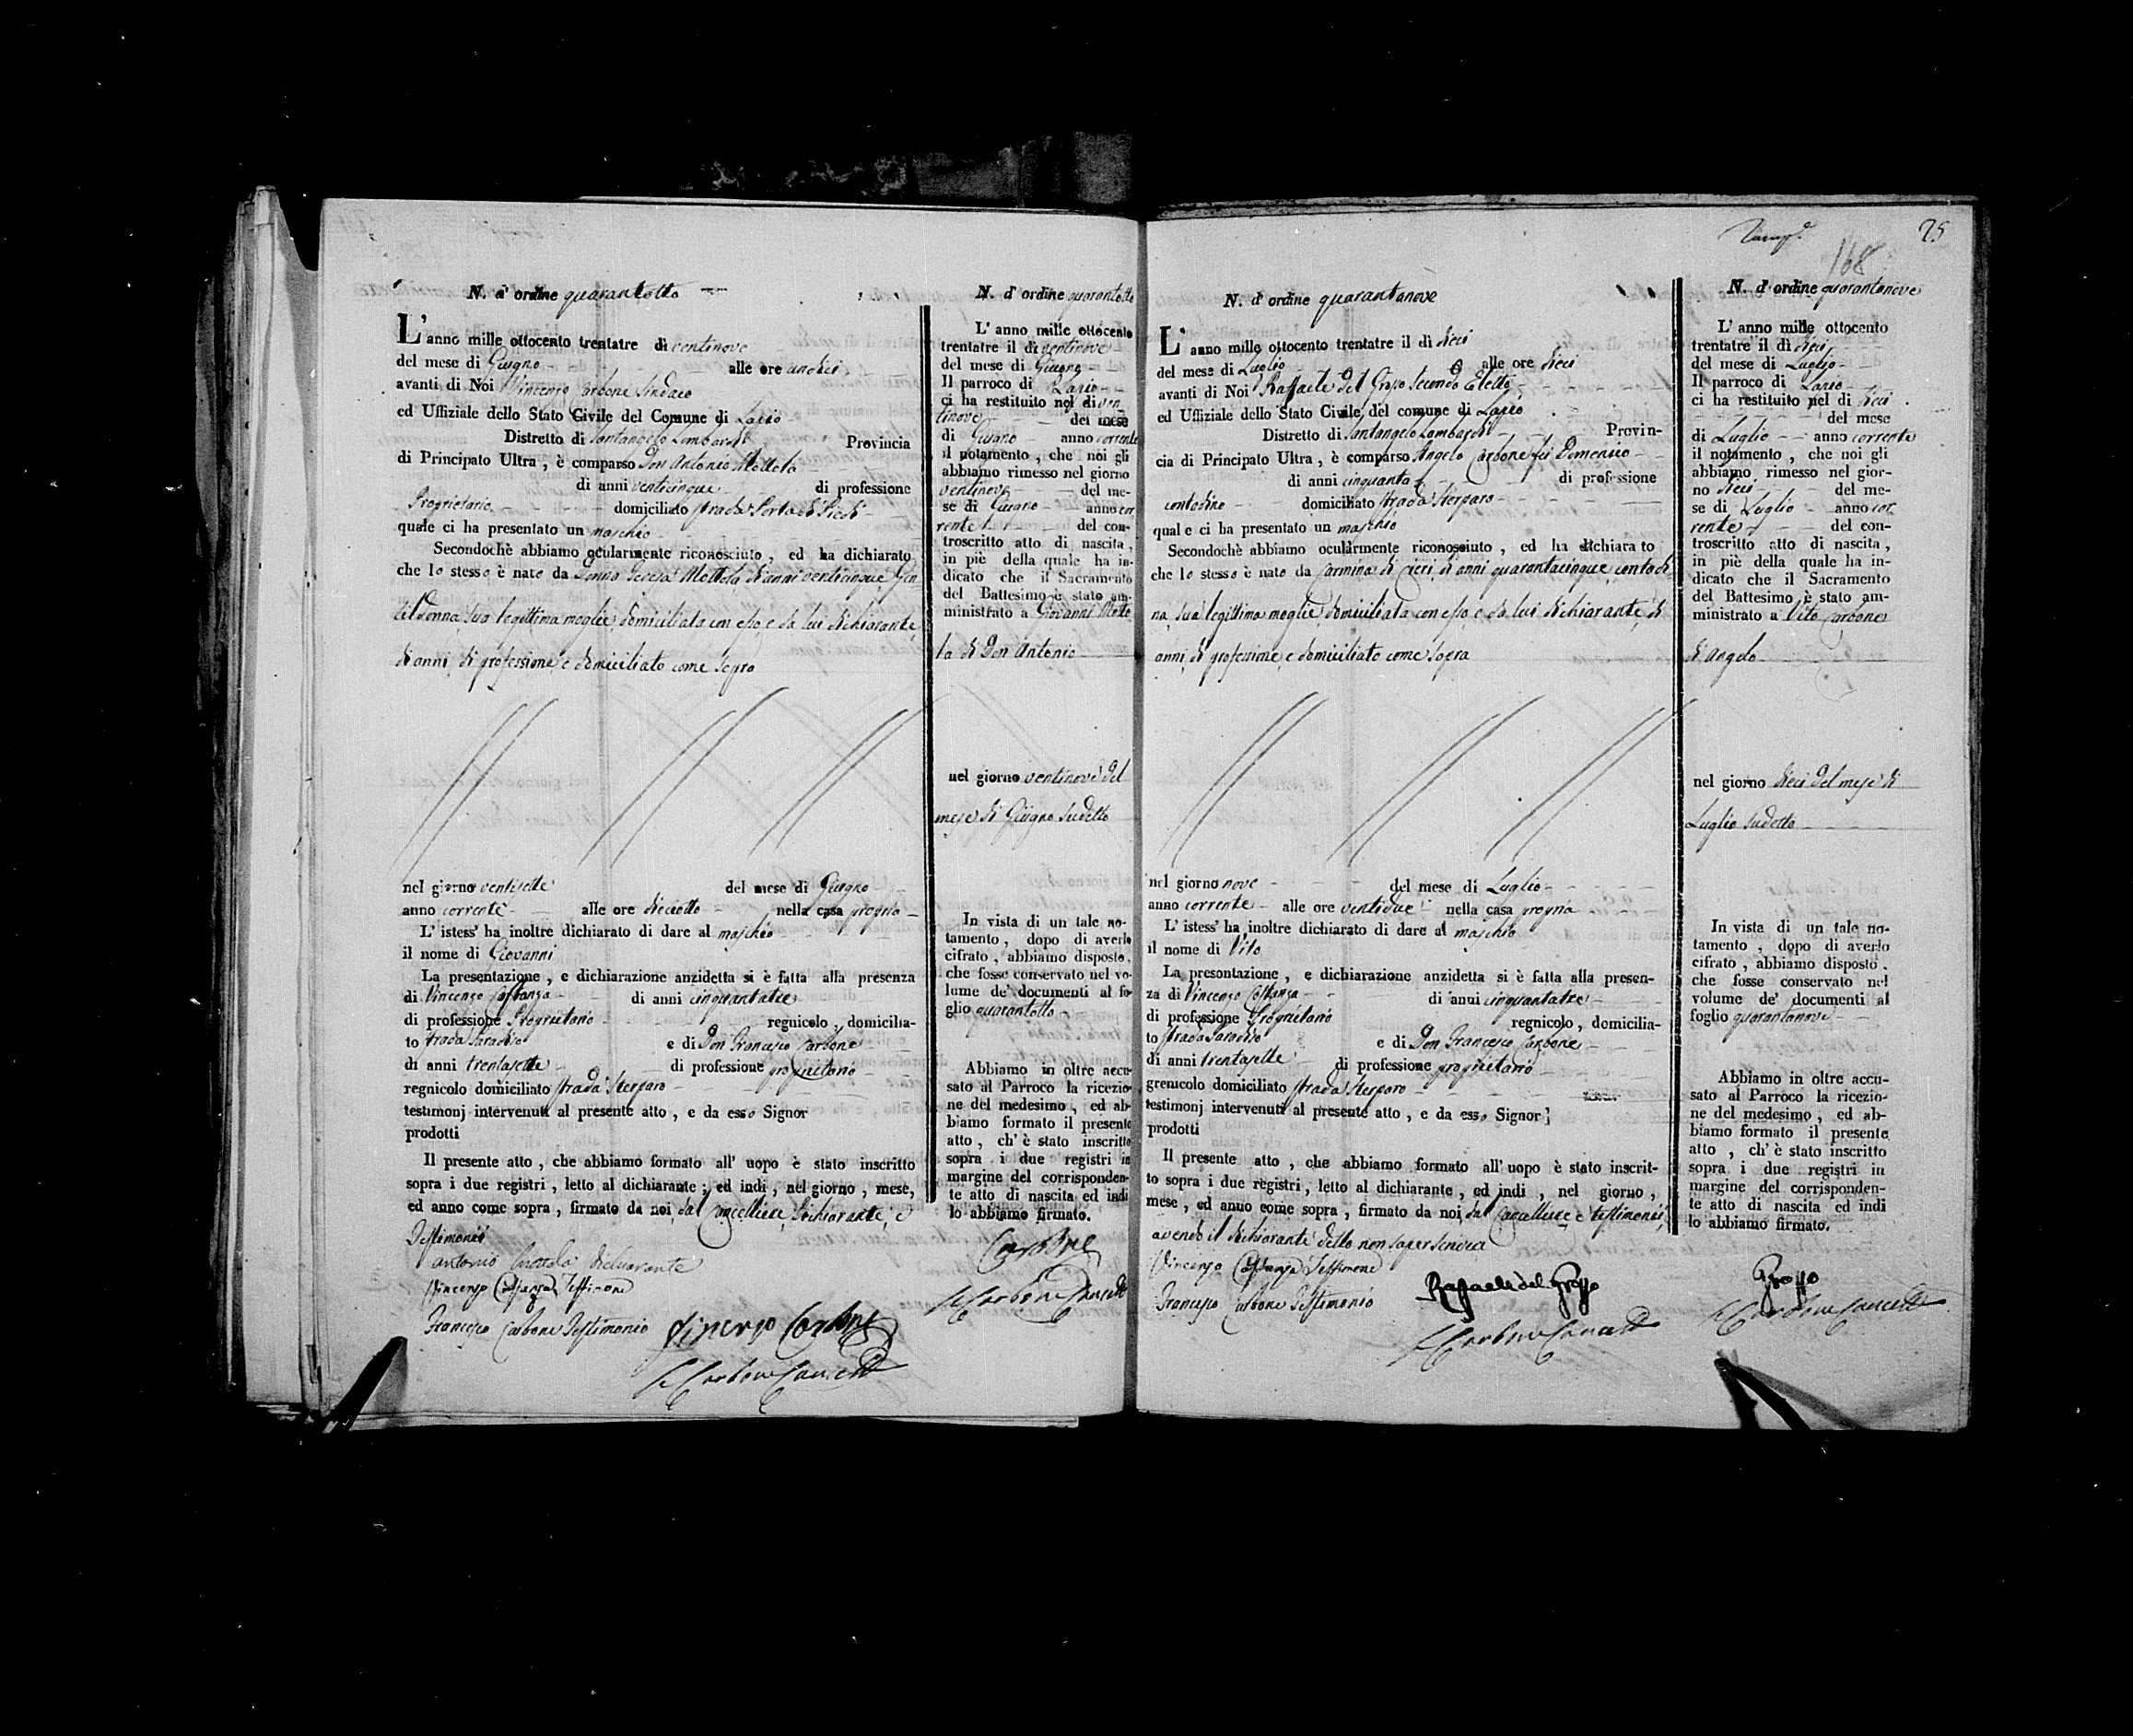 N. d' ordine quarantotto
L' anno mille ottocento trentatre dì ventinove
del mese di Giugno alle ore undici
avanti di Noi Vincenzo Carbone Sindaco
ed Uffiziale dello Stato Civile del Comune di Lapio
Distretto di Santangelo Lombardi Provincia
di Principato Ultra, è comparso Don Antonio Mottola
di anni venticinque di professione
Proprietario domiciliato strada Porta di Piedi
quale ci ha presentato un maschio
Secondochè abbiamo ocularmente riconosciuto, ed ha dichiarato
che lo stesso è nato da Donna Teresa Mottola di anni venticinque Gen
tildonna sua legittima moglie domiciliata con esso e da lui dichiarante,
di anni, di professione, e domiciliato come sopra
nel giorno ventisette del mese di Giugno
anno corrente alle ore dieciotto nella casa propria
L' istess' ha inoltre dichiarato di dare al maschio
il nome di Giovanni
La presentazione, e dichiarazione anzidetta si è fatta alla presenza
di Vincenzo Costanza di anni cinquantatre
di professione Proprietario regnicolo, domicilia-
to strada Paradiso e di Don Francesco Carbone
di anni trentasette di professione proprietario
regnicolo domiciliato strada Sterparo
testimonj intervenuti al presente atto, e da esso Signor
prodotti
Il presente atto, che abbiamo formato all' uopo è stato inscritto
sopra i due registri, letto al dichiarante; ed indi, nel giorno, mese,
ed anno come sopra, firmato da noi, dal Cancelliere, Dichiarante, e
Testimonii
Antonio Mottola dichiarante
Vincenzo Costanza Testimone
Francesco Carbone Testimonio
Vincenzo Carbone
Carbone Cancell
N. d' ordine quarantotto
L' anno mille ottocento
trentatre il dì ventinove
del mese di Giugno
Il parroco di Lapio
ci ha restituito nel di ven
tinove del mese
di Giugno anno corrente
il notamento, che noi gli
abbiamo rimesso nel giorno
ventinove del me-
se di Giugno anno cor
rente del con-
troscritto atto di nascita,
in piè della quale ha in-
dicato che il Sacramento
del Battesimo è stato am-
ministrato a Giovanni Motto
la di Don Antonio
nel giorno ventinove del
mese di Giugno sudetto
In vista di un tale no-
tamento, dopo di averlo
cifrato, abbiamo disposto,
che fosse conservato nel vo-
lume de' documenti al fo-
glio quarantotto
Abbiamo in oltre accu-
sato al Parroco la ricezio-
ne del medesimo, ed ab-
biamo formato il presente
atto, ch' è stato inscritto
sopra i due registri in
margine del corrisponden-
te atto di nascita ed indi
lo abbiamo firmato.
Carbone
Carbone Cancell
25
168
N. d' ordine quarantanove
L' anno mille ottocento trentatre il dì dieci
del mese di Luglio alle ore dieci
avanti di Noi Raffaele del Grosso Secondo Eletto
ed Uffiziale dello Stato Civile del comune di Lapio
Distretto di Santangelo Lombardi Provin-
cia di Principato Ultra, è comparso Angelo Carbone fu Domenico
di anni cinquanta di professione
contadino domiciliato strada Sterparo
quale ci ha presentato un maschio
Secondochè abbiamo ocularmente riconosciuto, ed ha dichiarato
che lo stesso è nato da Carmina di Cieri di anni quarantacinque contadi
na, sua legittima moglie, domiciliata con esso, e da lui dichiarante, di
anni, di professione, e domiciliato come sopra
nel giorno nove del mese di Luglio
anno corrente alle ore ventidue nella casa propria
L' istess' ha inoltre dichiarato di dare al maschio
il nome di Vito
La presontazione, e dichiarazione anzidetta si è fatta alla presen-
za di Vincenzo Costanza di anni cinquantatre
di professione Proprietario regnicolo, domicilia-
to strada Paradiso e di Don Francesco Carbone
di anni trentasette di professione proprietario
grenicolo domiciliato strada Sterparo
testimonj intervenuti al presente atto, e da esso Signor
prodotti
Il presente atto, che abbiamo formato all' uopo è stato inscrit-
to sopra i due registri, letto al dichiarante, ed indi, nel giorno,
mese, ed anno come sopra, firmato da noi, dal Cancelliere e testimonii,
avendo il dichiarante detto non saper scrivere
Vincenzo Costanza Testimone
Francesco Carbone Testimonio
Raffaele del Grosso
Carbone Cancell
N. d' ordine quarantanove
L' anno mille ottocento
trentatre il dì dieci
del mese di Luglio
Il parroco di Lapio
ci ha restituito nel di dieci
del mese
di Luglio anno corrente
il notamento, che noi gli
abbiamo rimesso nel gior-
no dieci del me-
se di Luglio anno cor
rente del con-
troscritto atto di nascita,
in piè della quale ha in-
dicato che il Sacramento
del Battesimo è stato am-
ministrato a Vito Carbone
di Angelo
nel giorno dieci del mese di
Luglio sudetto
In vista di un tale no-
tamento, dopo di averlo
cifrato, abbiamo disposto,
che fosse conservato nel
volume de' documenti al
foglio quarantanove
Abbiamo in oltre accu-
sato al Parroco la ricezio-
ne del medesimo, ed ab-
biamo formato il presente
atto, ch' è stato inscritto
sopra i due registri in
margine del corrisponden-
te atto di nascita ed indi
lo abbiamo firmato.
Grosso
Carbone Cancell